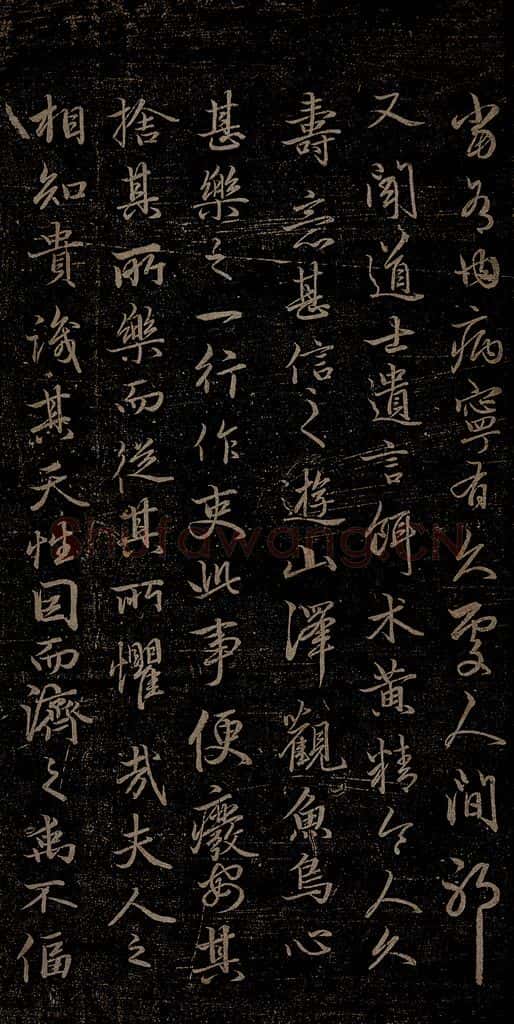 當有内病寧有久處人間邪
又聞道士遺言餌术黃精令人久
壽意甚信之遊山澤觀魚鳥心
甚樂之一行作吏此事便癈安其
捨其所樂而從其所懼哉夫人之
相知貴識其天性因而濟之禹不偪
Shufawang.CN